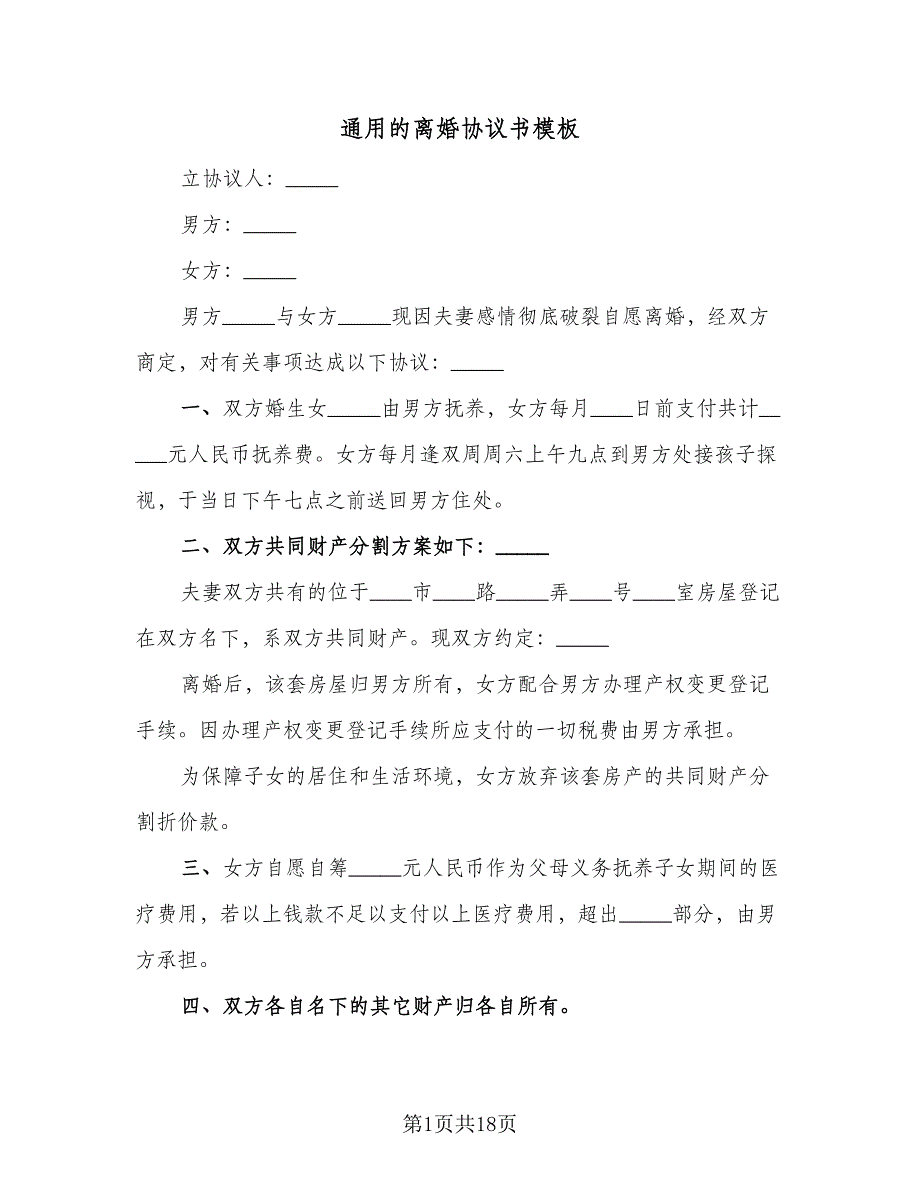 通用的离婚协议书模板
立协议人：_____
男方：_____
女方：_____
男方_____与女方_____现因夫妻感情彻底破裂自愿离婚，经双方
商定，对有关事项达成以下协议：_____
一、双方婚生女_____由男方抚养，女方每月____日前支付共计__
___元人民币抚养费。女方每月逢双周周六上午九点到男方处接孩子探
视，于当日下午七点之前送回男方住处。
二、双方共同财产分割方案如下：_____
夫妻双方共有的位于____市____路_____弄____号____室房屋登记
在双方名下，系双方共同财产。现双方约定：_____
离婚后，该套房屋归男方所有，女方配合男方办理产权变更登记
手续。因办理产权变更登记手续所应支付的一切税费由男方承担。
为保障子女的居住和生活环境，女方放弃该套房产的共同财产分
割折价款。
三、女方自愿自筹_____元人民币作为父母义务抚养子女期间的医
疗费用，若以上钱款不足以支付以上医疗费用，超出_____部分，由男
方承担。
四、双方各自名下的其它财产归各自所有。
第1页共18页